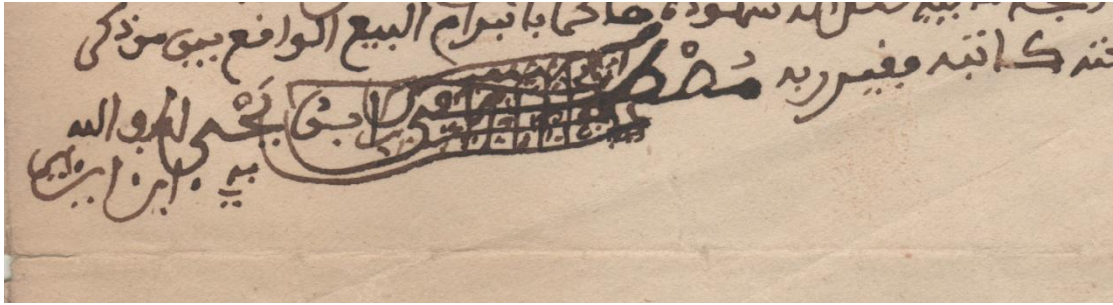 شهوده حاكما بابرام البيع الواقع بين من ذكر
كاتبه فقير ربه مصطفى ابن يحيى لطف الله
به ابن ابن